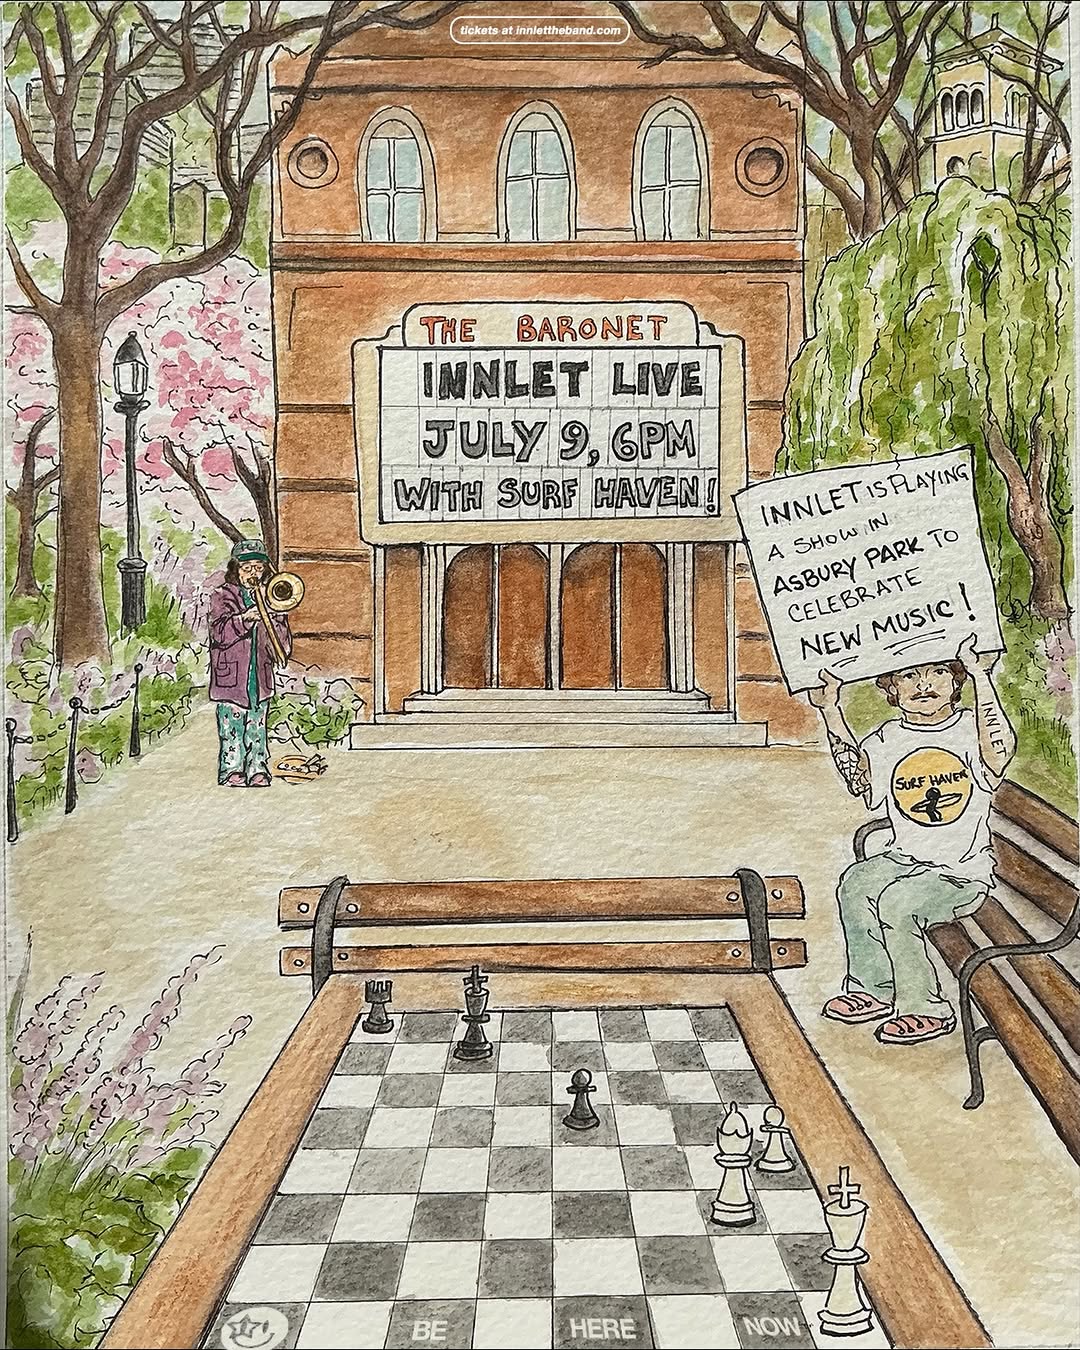 tickets at innlettheband.com
THE BARONET
INNLET LIVE
JULY 9, 6PM
WITH SURF HAVEN!
INNLET IS PLAYING
A SHOW IN
ASBURY PARK TO
CELEBRATE
NEW MUSIC!
INNLET
SURF HAVEN
BE HERE NOW